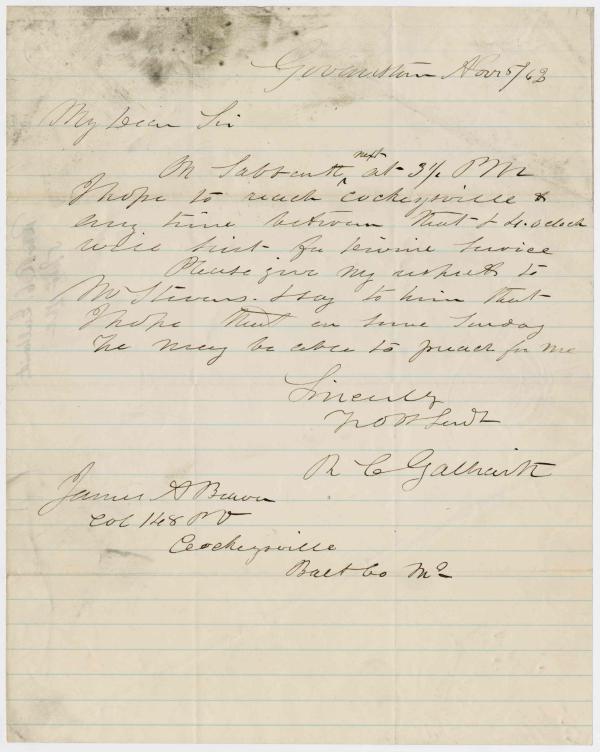 Govanstown Nov 5/62
My Dear Sir
On Sabbath next at 3½ P M
I hope to reach Cockeysville &
any time between that & 4. oclock
will suit for Divine Service
Please give my respects to
Mr Stevens. & say to him that
I hope that on some Sunday
he may be able to preach for me
Sincerely
Yr Ob Servt
R C Galbraith
James A Beaver
Col 148 P V
Cockeysville
Balt Co Md